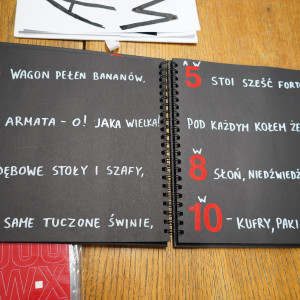 WAGON PEŁEN BANANÓW,
ARMATA - O! JAKA WIELKA!
DĘBOWE STOŁY I SZAFY,
SAME TUCZONE ŚWINIE,
A W
5 STOI SZEŚĆ FORT
POD KAŻDYM KOŁEM ŻE
W
8 SŁOŃ, NIEDŹWIEDŹ
W
10 - KUFRY, PAKI